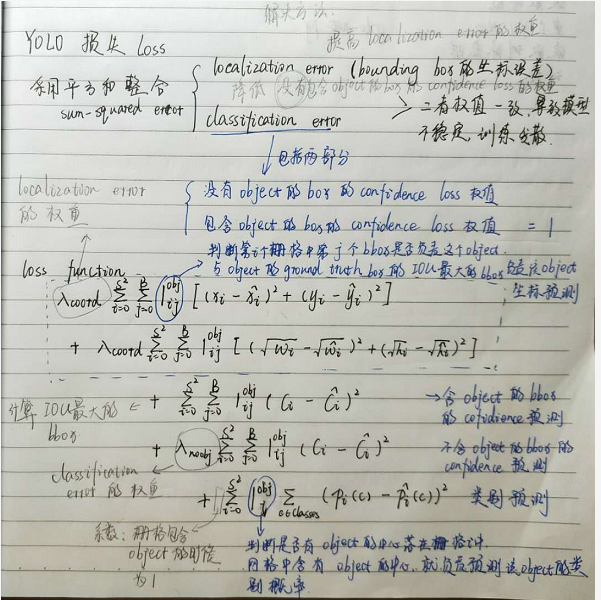 解决方法:
YOLO 损失 Loss
提高 localization error 的权重
采用平方和整合
sum-squared error
localization error (bounding box的坐标误差)
降低 没有包含object的box的confidence loss的权重
classification error
> 二者权值一致,导致模型
不稳定,训练发散.
包括两部分
localization error
的权重
没有object的box的confidence loss 权值
包含object的box的confidence loss 权值 = 1
判断第i个栅格中第j个bbox是否负责这个object.
与object的ground truth box的IOU最大的bbox负责该object
loss function
坐标预测
λcoord Σ_{i=0}^{S²} Σ_{j=0}^{B} 1_{ij}^{obj} [(xi - x̂i)² + (yi - ŷi)²]
+ λcoord Σ_{i=0}^{S²} Σ_{j=0}^{B} 1_{ij}^{obj} [(√wi - √ŵi)² + (√hi - √ĥi)²]
计算 IOU最大的
bbox
+ Σ_{i=0}^{S²} Σ_{j=0}^{B} 1_{ij}^{obj} (Ci - Ĉi)²
→含 object 的 bbox
的 cofidience 预测
+ λnoobj Σ_{i=0}^{S²} Σ_{j=0}^{B} 1_{ij}^{obj} (Ci - Ĉi)²
不含 object的 bbox 的
confidence 预测
classification
error 的 权重
+ Σ_{i=0}^{S²} 1_{i}^{obj} Σ_{c∈classes} (Pi(c) - P̂i(c))²
类别 预测
系数: 栅格包含
object 的时候
为 1
判断是否有 object的中心落在栅格i中.
网格中含有 object的中心,就负责预测该object的类
别概率.